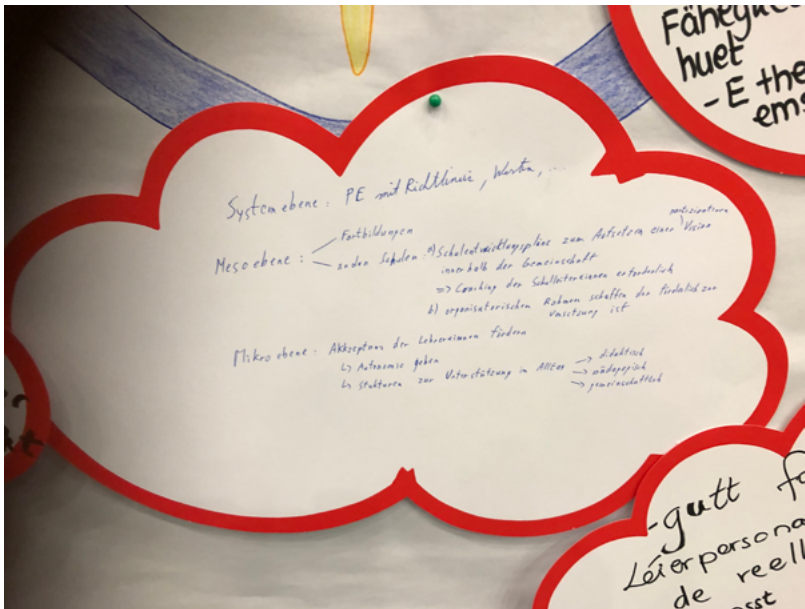 Fäheg
huet
- E the
ems
Systemebene: PE mit Richtlinien, Werten, ...
Mesoebene: Fortbildungen
an den Schulen: a) Schulentwicklungspläne zum Aufsetzen einer partizipativen Vision
innerhalb der Gemeinschaft
=> Coaching der SchulleiterInnen erforderlich
b) organisatorischen Rahmen schaffen der förderlich zur
Umsetzung ist
Mikroebene: Akkzeptanz der Lehrerinnen fördern
↳ Autonomie geben
↳ Stukturen zur Unterstützung im Alltag → didaktisch
→ pädagogisch
→ gemeinschaftlich
-gutt fo
Léierpersona
de reell
sst